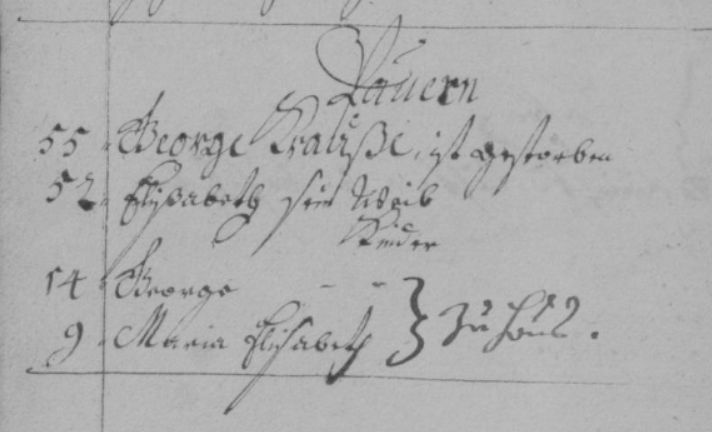 Pauern
55. George Kraußße, ist gestorben
52. Elisabeth sein Weib
Kinder
14 George - -
9. Maria Elisabeth } Zu Hauß.